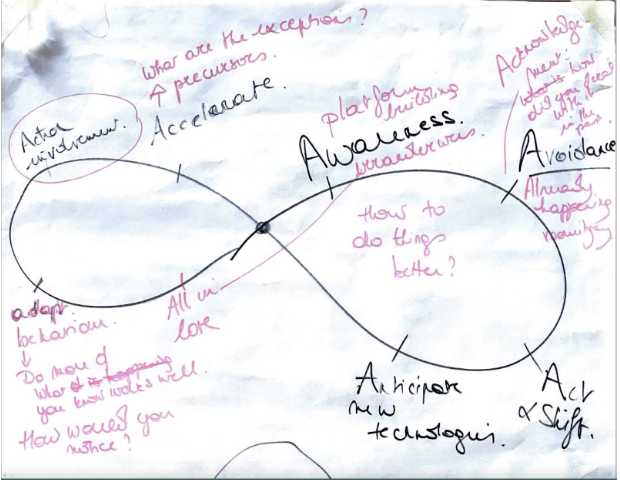 What are the exceptions?
↑ precursors.
Accelerate.
Actual
involvement.
platform
building
Awareness.
Acknowledge-
ment:
how
did you deal
with it
in the
past.
Avoidance
Already
happening
How to
do things
better?
All in
love
adapt
behaviour.
↓
Do more of
what
you know works well.
How would you
notice?
Anticipate
new
technologies.
Act
& Shift.